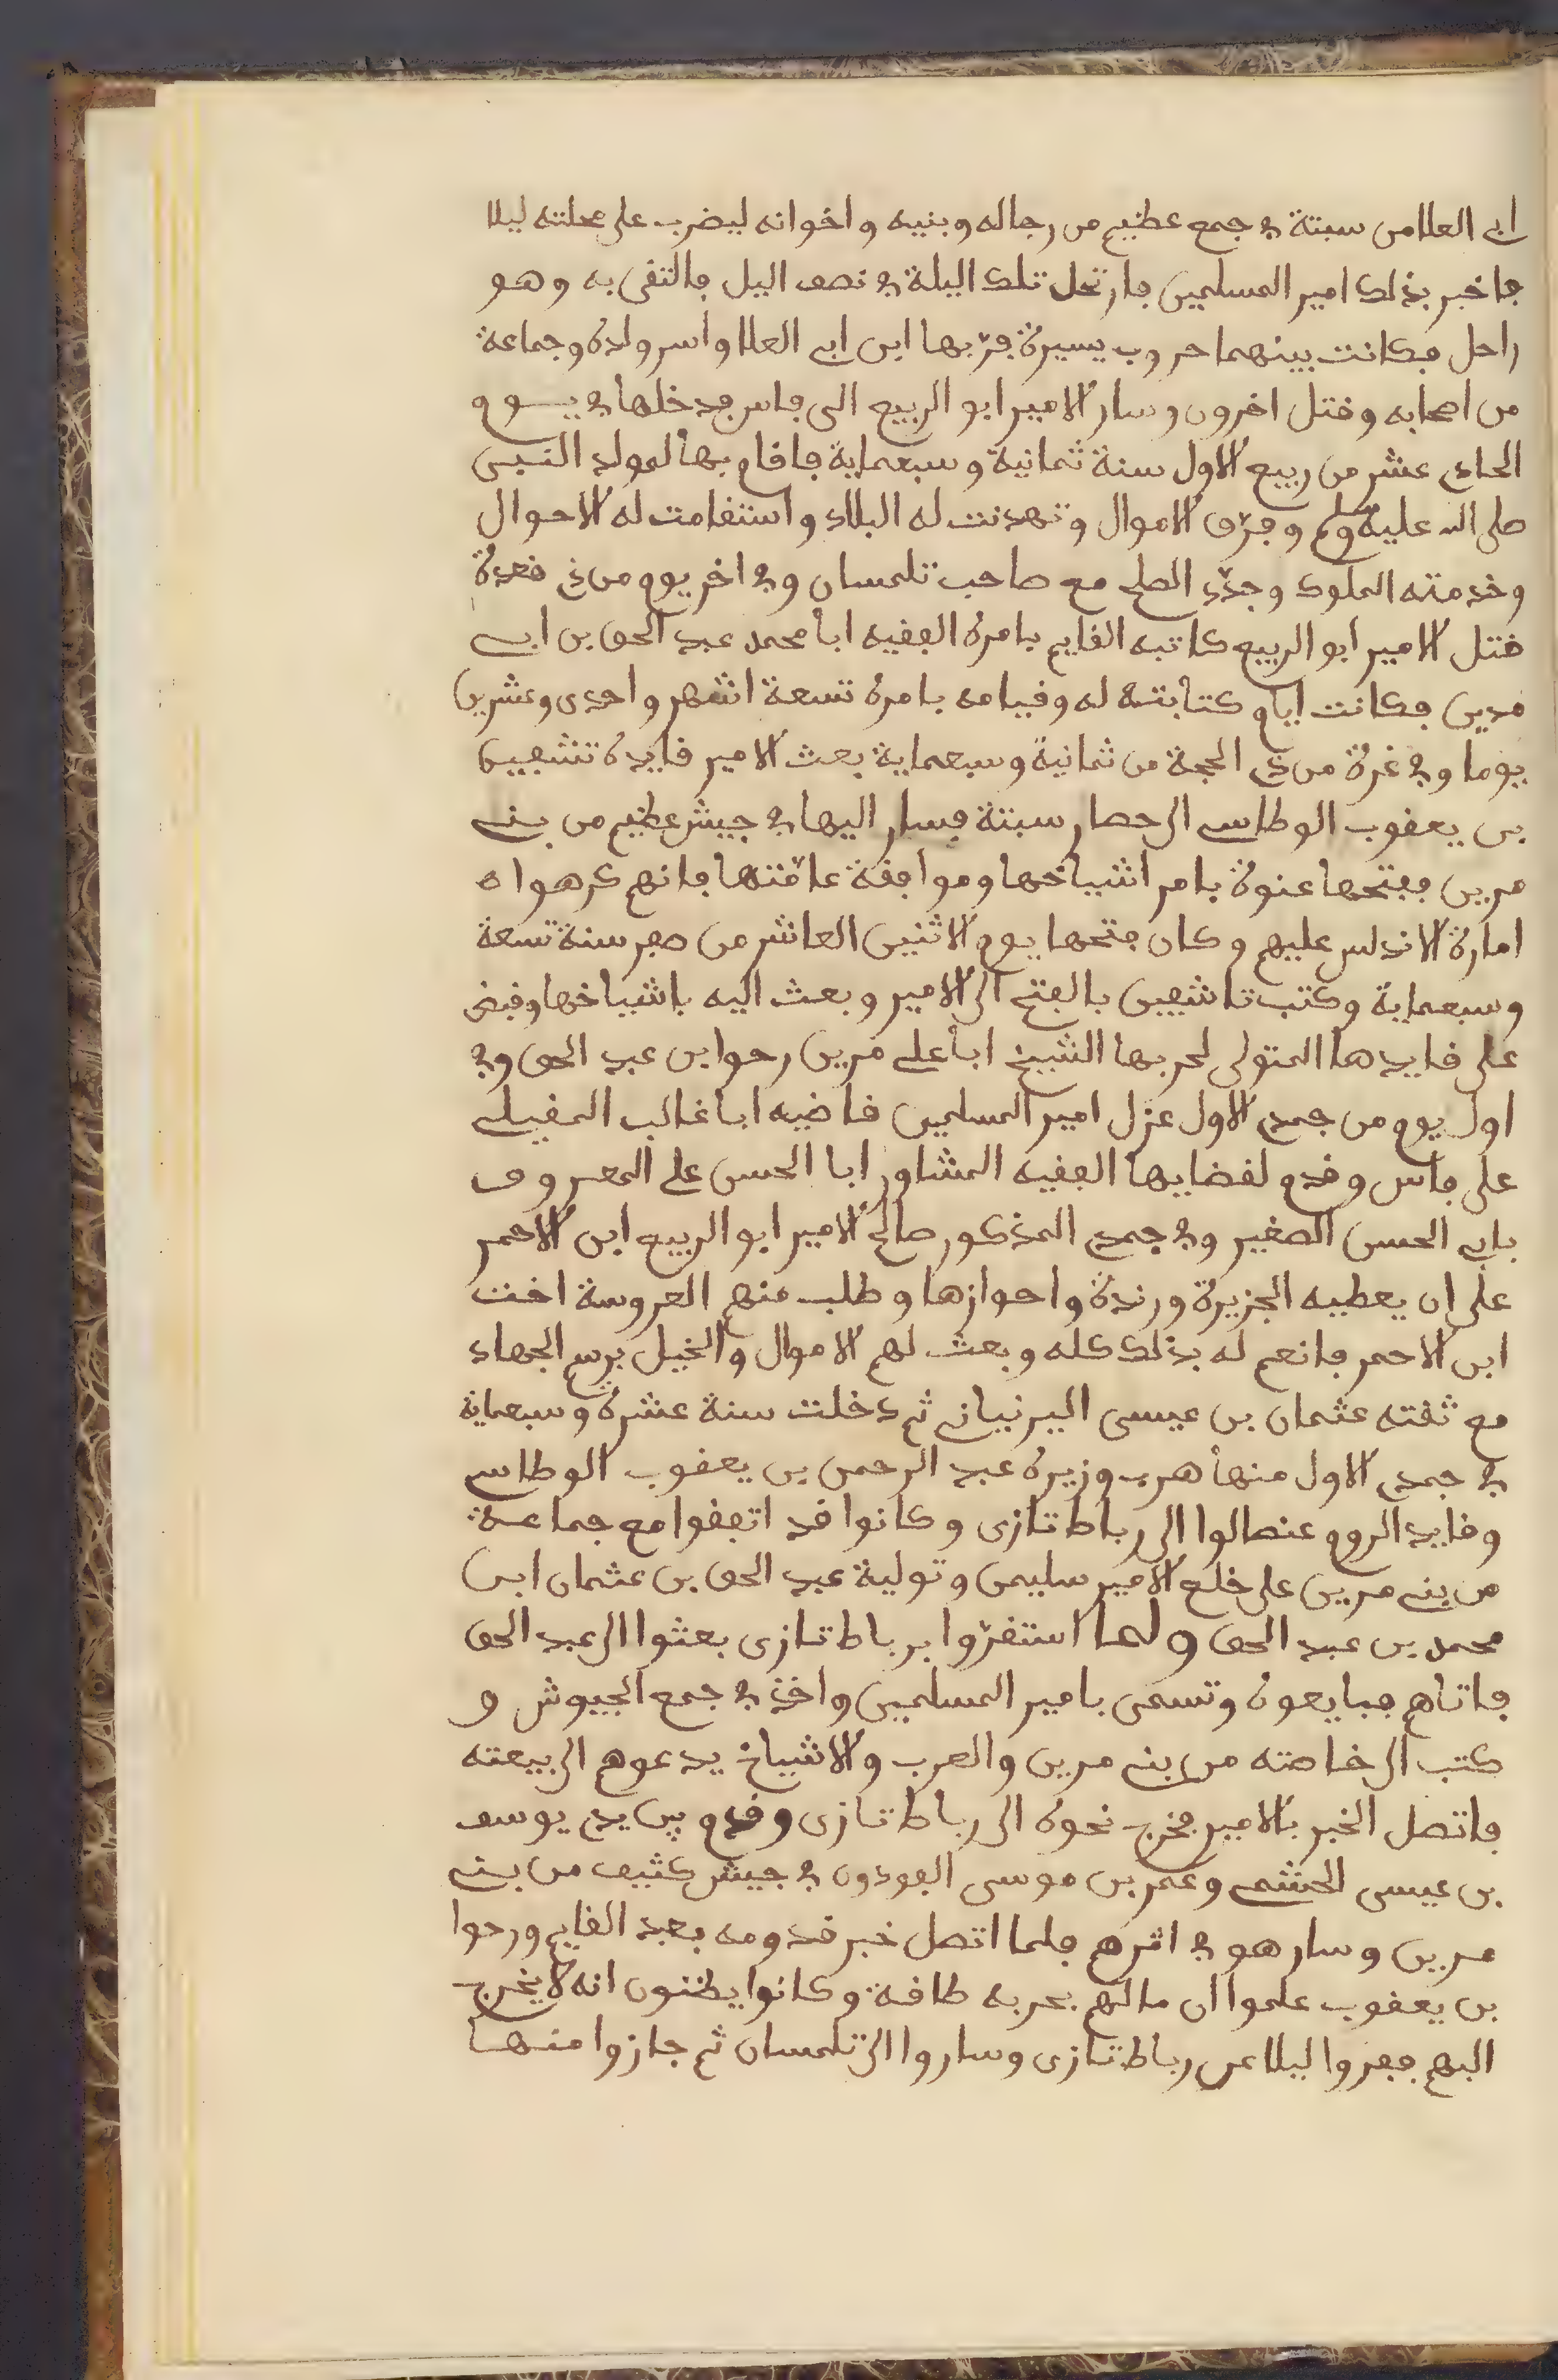 ابي العلا من سبتة في جمع عظيم من رجاله وبنيه واخوانه ليضرب على محلته ليلا
فاخبر بذلك امير المسلمين فارتحل تلك اليلة في نصف اليل فالتقى به وهو
راحل فكانت بينهما حروب يسيرة فرّ بها ابن ابي العلا واسر ولده وجماعة
من اصحابه وقتل اخرون وسار الامير ابو الربيع الى فاس فدخلها في يوم
الحادي عشر من ربيع الاول سنة ثمانية وسبعماية فاقام بها لمولد النبي
صلى الله عليه وسلم وفرّق الاموال وتهدنت له البلاد واستقامت له الاحوال
وخدمته الملوك وجدّد الصلح مع صاحب تلمسان وفي اخر يوم من ذي قعدة
قتل الامير ابو الربيع كاتبه القايم بامره الفقيه ابا محمد عبد الحق بن ابي
مدين فكانت ايام كتابته له وقيامه بامره تسعة اشهر واحدى وعشرين
يوما وفي غرة من ذي الحجة من ثمانية وسبعماية بعث الامير قايده تشفين
بن يعقوب الوطاسي الى حصار سبتة فسار اليها في جيش عظيم من بني
مرين ففتحها عنوة بامر اشياخها وموافقة عامّتها فانهم كرهوا ه
امارة الاندلس عليهم وكان فتحها يوم الاثنين العاشر من صفر سنة تسعة
وسبعماية وكتب تاشفين بالفتح الى الامير وبعث اليه باشياخها وقبض
على قايدها المتولى لحربها الشيخ ابا علي مرين رحوا بن عبد الحق وفي
اول يوم من جمدى الاول عزل امير المسلمين قاضيه ابا غالب المغيلي
على فاس وقدم لقضايها الفقيه المشاور ابا الحسن علي المعروف
بابي الحسن الصغير وفي جمدى المذكور صالح الامير ابو الربيع ابن الاحمر
على ان يعطيه الجزيرة ورندة واحوازها وطلب منهم العروسة اخت
ابن الاحمر فانعم له بذلك كله وبعث لهم الاموال والخيل برسم الجهاد
مع ثقته عثمان بن عيسى اليرنياني ثم دخلت سنة عشرة وسبعماية
في جمدى الاول منها هرب وزيره عبد الرحمن بن يعقوب الوطاسي
وقايد الروم عنصالوا الى رباط تازى وكانوا قد اتفقوا مع جماعة
من بني مرين على خلع الامير سليمن وتولية عبد الحق بن عثمان ابن
محمد بن عبد الحق ولما استقرّوا برباط تازى بعثوا الى عبد الحق
فاتاهم فبايعوه وتسمى بامير المسلمين واخذ في جمع الجيوش و
كتب الى خاصته من بني مرين والعرب والاشياخ يدعوهم الى بيعته
فاتصل الخبر بالامير فخرج نحوه الى رباط تازى وقدم بين يديه يوسف
بن عيسى الحشمي وعمر بن موسى الفودودي في جيش كثيف من بني
مرين وسار هو في اثرهم فلما اتصل خبر قدومه بعبد القايم ورحوا
بن يعقوب علموا ان مالهم بحربه طاقة وكانوا يظنون انه لا يخرج
اليهم ففروا ليلا عن رباط تازى وساروا الى تلمسان ثم جازوا منها